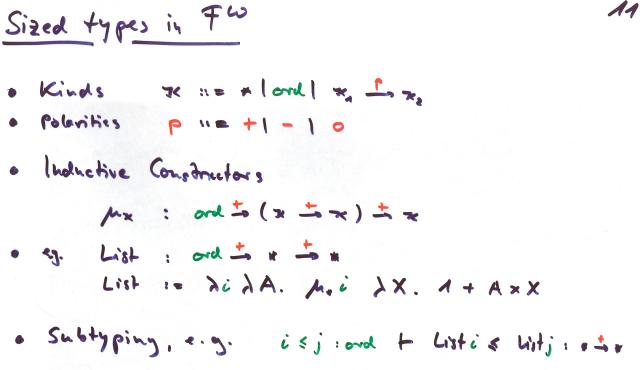 Sized types in Fω
11
• Kinds κ ::= * | ord | κ₁ —p→ κ₂
• Polarities p ::= + | - | o
• Inductive Constructors
μκ : ord —+→ (κ —+→ κ) —+→ κ
• eg. List : ord —+→ * —+→ *
List := λi λA. μ* i λX. 1 + A × X
• Subtyping, e.g. i ≤ j : ord ⊢ List i ≤ List j : * —+→ *